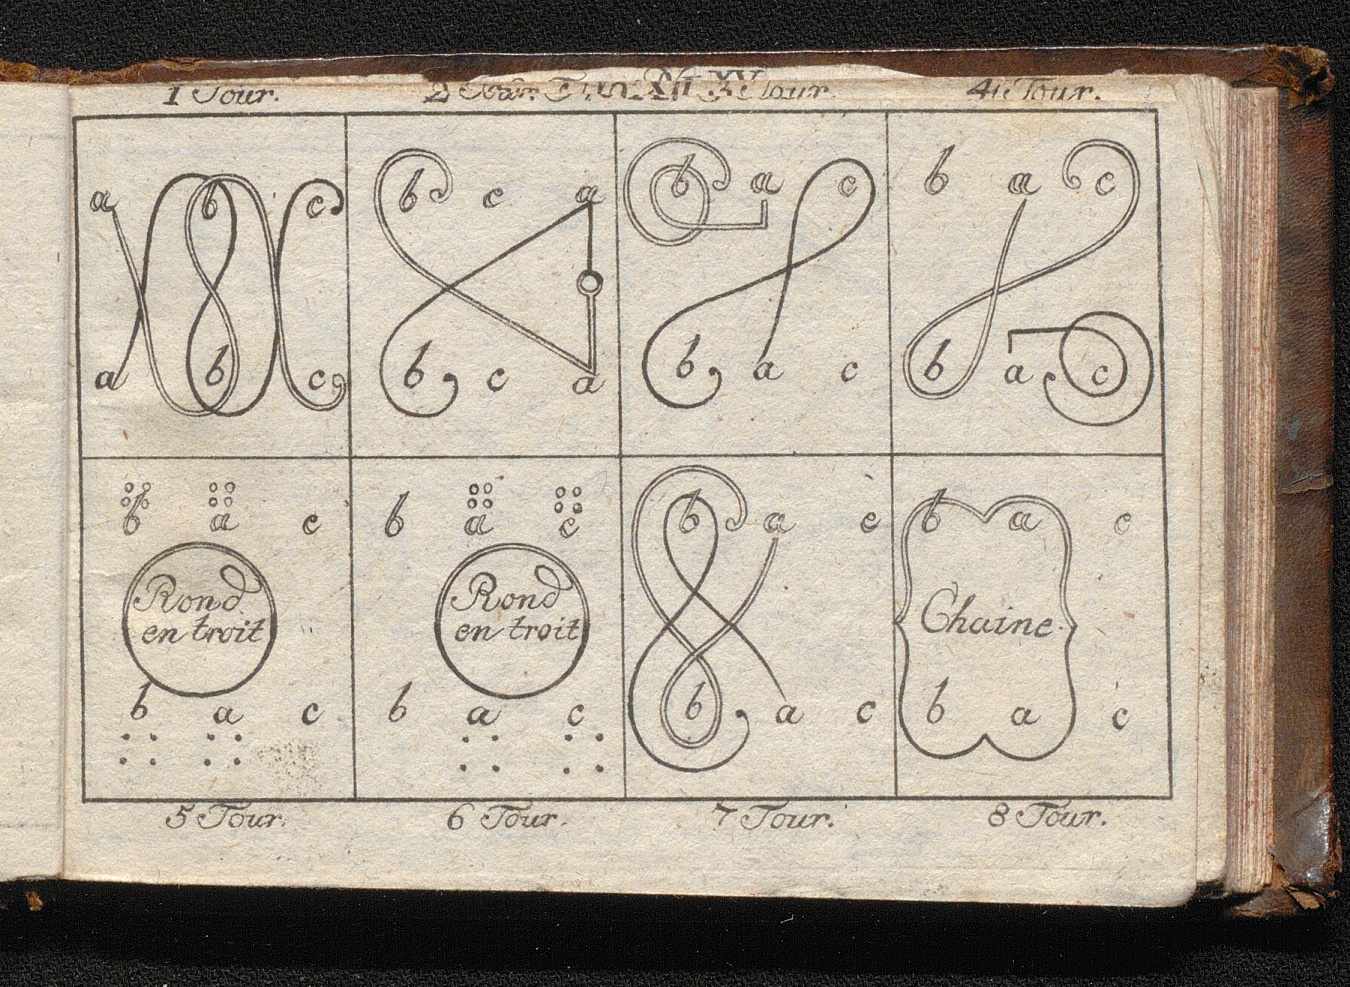 1 Tour.
2 Tour.
3 Tour.
4 Tour.
a b c
a b c
b c a
b c a
b a c
b a c
b a c
b a c
b a c
Rond
en troit
b a c
b a c
Rond
en troit
b a c
b a c
b a c
b a c
Chaine
b a c
5 Tour.
6 Tour.
7 Tour.
8 Tour.